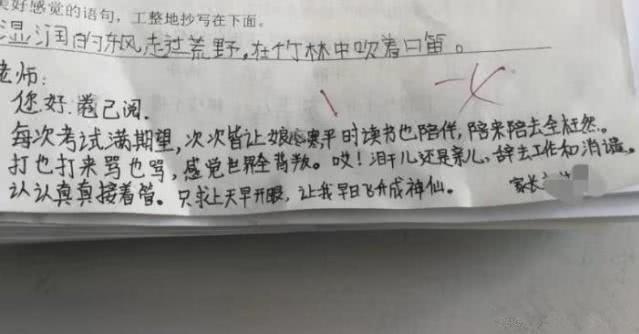 美好感觉的语句,工整地抄写在下面。
湿润的东风,走过荒野,在竹林中吹着口笛。
老师:
您好.卷已阅.
每次考试满期望,次次皆让娘心寒,平时读书也陪伴,陪来陪去全枉然。
打也打来骂也骂,感觉世界全背叛。哎!泪干儿还是亲儿,辞去工作和消遣。
认认真真接着管。只求上天早开眼,让我早日飞升成神仙。 家长